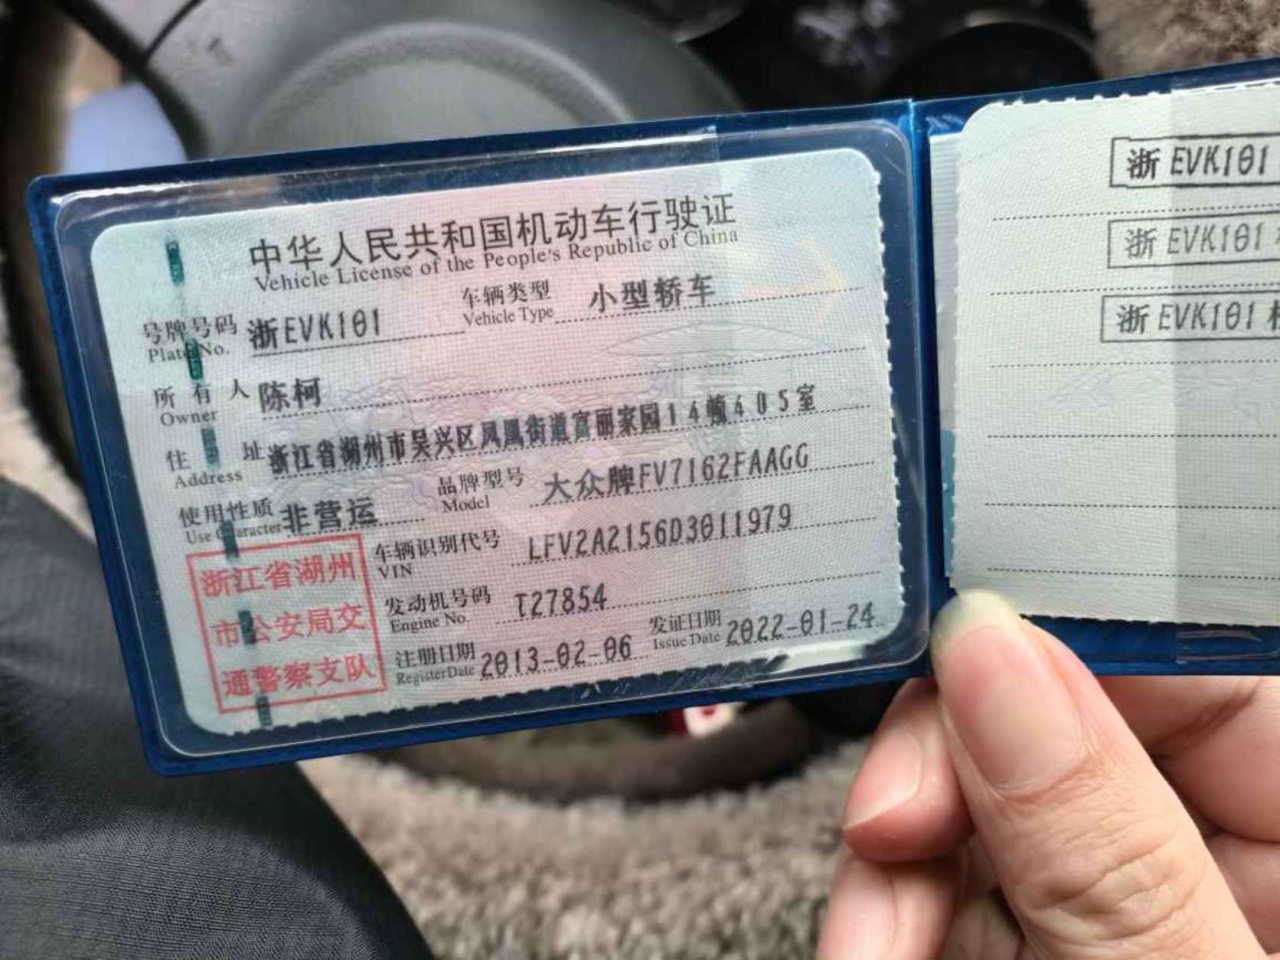 中华人民共和国机动车行驶证
Vehicle License of the People's Republic of China
号牌号码 浙EVK101 车辆类型 小型轿车
Plate No. Vehicle Type
所有人 陈柯
Owner
住址 浙江省湖州市吴兴区凤凰街道富丽家园14幢405室
Address
使用性质 非营运 品牌型号 大众牌FV7162FAAGG
Use Character Model
浙江省湖州
市公安局交
通警察支队
车辆识别代号 LFV2A2156D3011979
VIN
发动机号码 T27854
Engine No.
注册日期 2013-02-06 发证日期 2022-01-24
Register Date Issue Date
浙EVK101
浙EVK101
浙EVK101